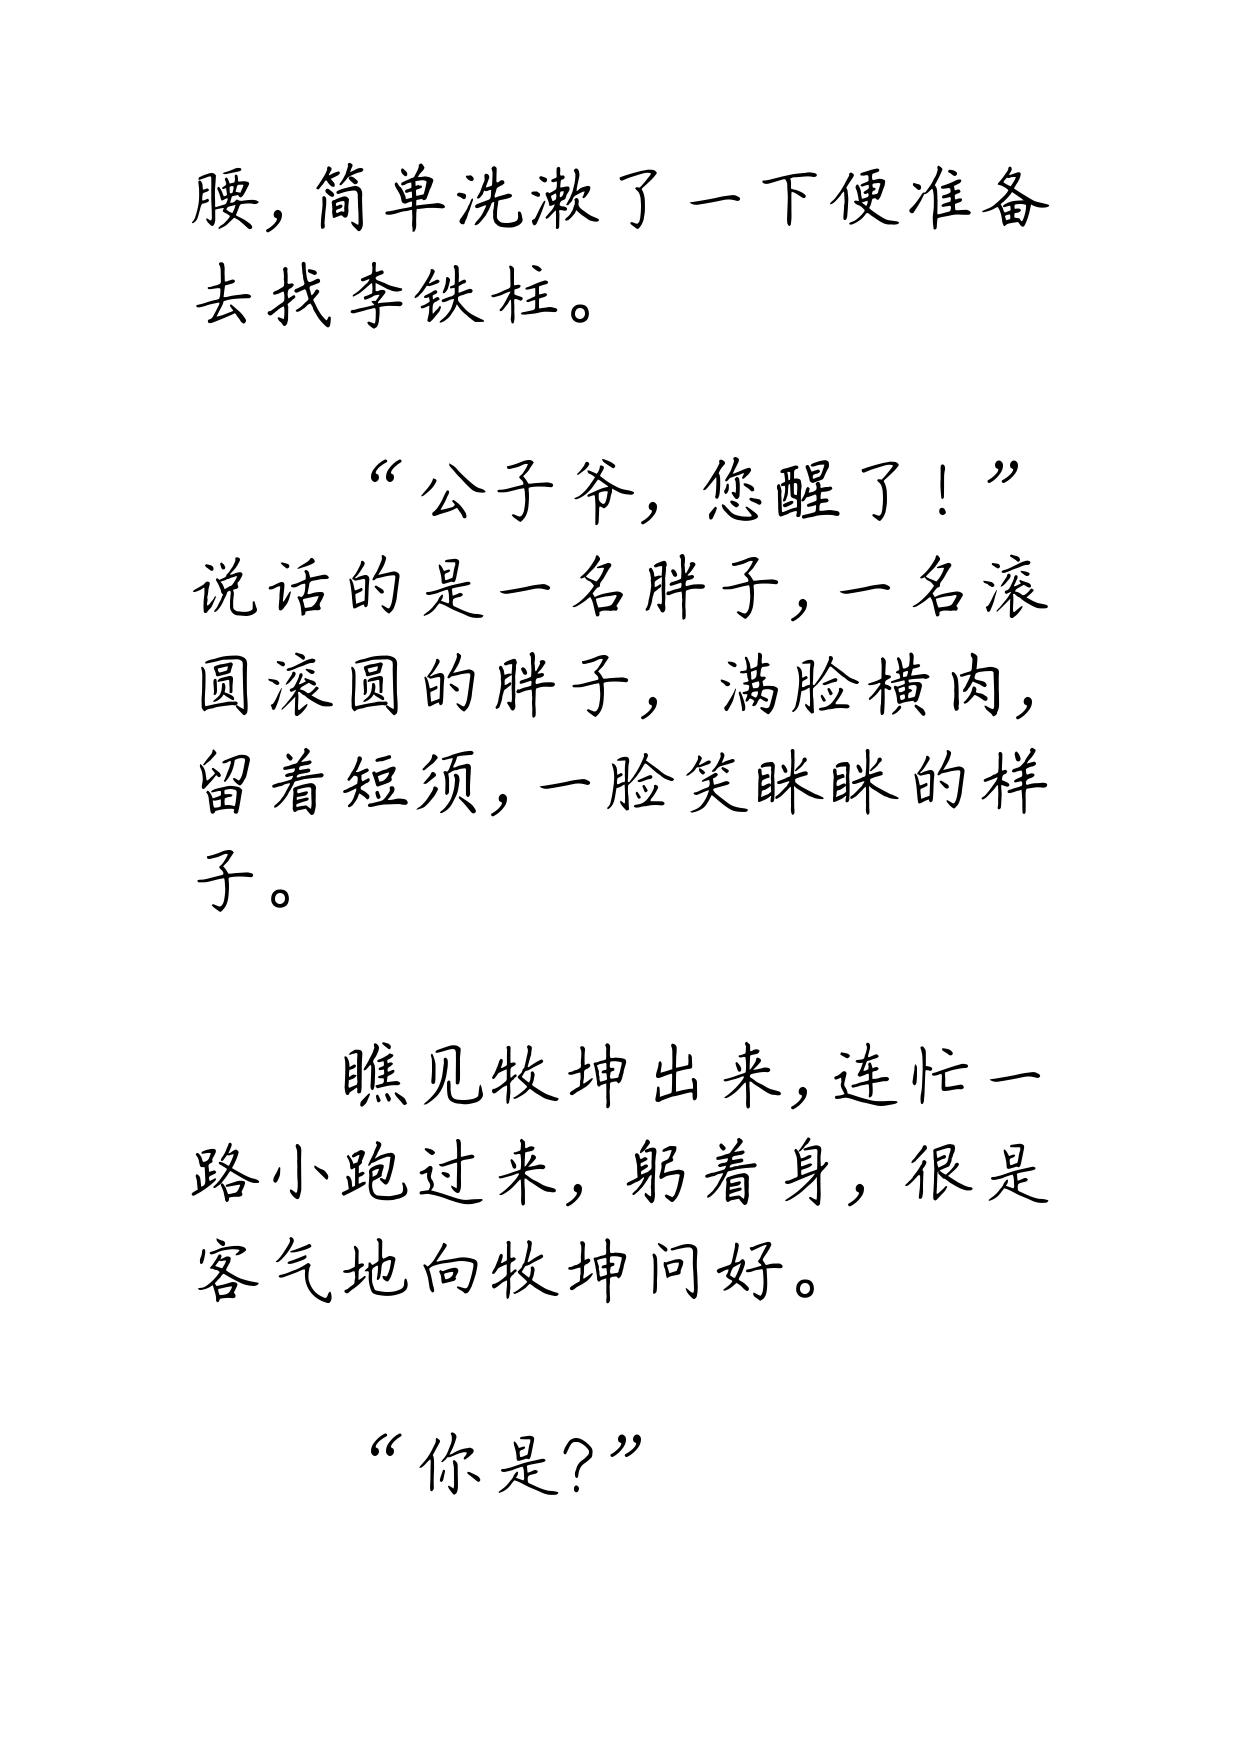 腰,简单洗漱了一下便准备
去找李铁柱。
“公子爷,您醒了!”
说话的是一名胖子,一名滚
圆滚圆的胖子,满脸横肉,
留着短须,一脸笑眯眯的样
子。
瞧见牧坤出来,连忙一
路小跑过来,躬着身,很是
客气地向牧坤问好。
“你是?”